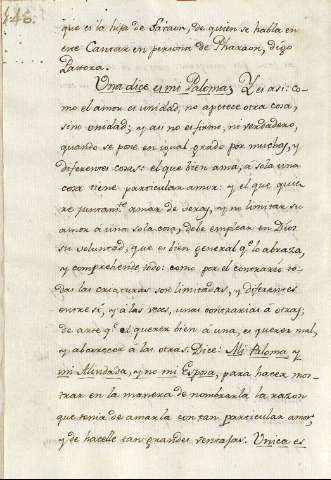 148.
que es la hija de Faraon, de quien se habla en
este Cantar en persona de Pharaon, digo
Pastora.
Una dize es mi Paloma; Y es asi: co-
mo el amor es unidad, no apetece otra cosa,
sino unidad; y asi no es firme, ni verdadero,
quando se pone en igual grado por muchas, y
diferentes cosas: el que bien ama, a sola una
cosa tiene particular amor: y el que quie-
re juntamte. amar de veras, y no limitar su
amor a una sola cosa, debe emplear en Dios
su voluntad, que es bien general qe. lo abraza,
y comprehende todo: como por el contrario to-
das las criaturas son limitadas, y diferentes
entre sí, y a las veces, unas contrarias a otras;
de arte qe. el querer bien à una, es querer mal,
y aborrecer à las otras. Dice: Mi Paloma, y
mi Alindada, y no mi Esposa, para hacer mos-
trar en la manera de nombrarla la razon
que tenia de amarla con tan particular amor,
y de hacelle tan grandes ventajas. Unica es